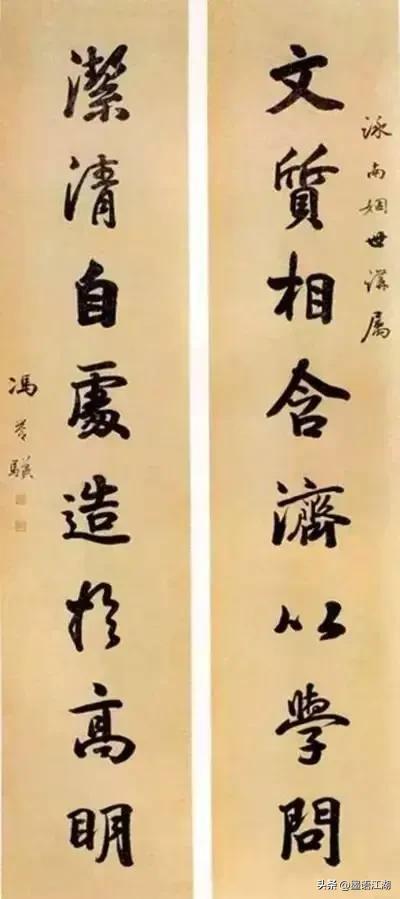 泳南姻世講属
文質相含濟以學問
潔清自處造於高明
馮誉驥
头条 @墨语江湖